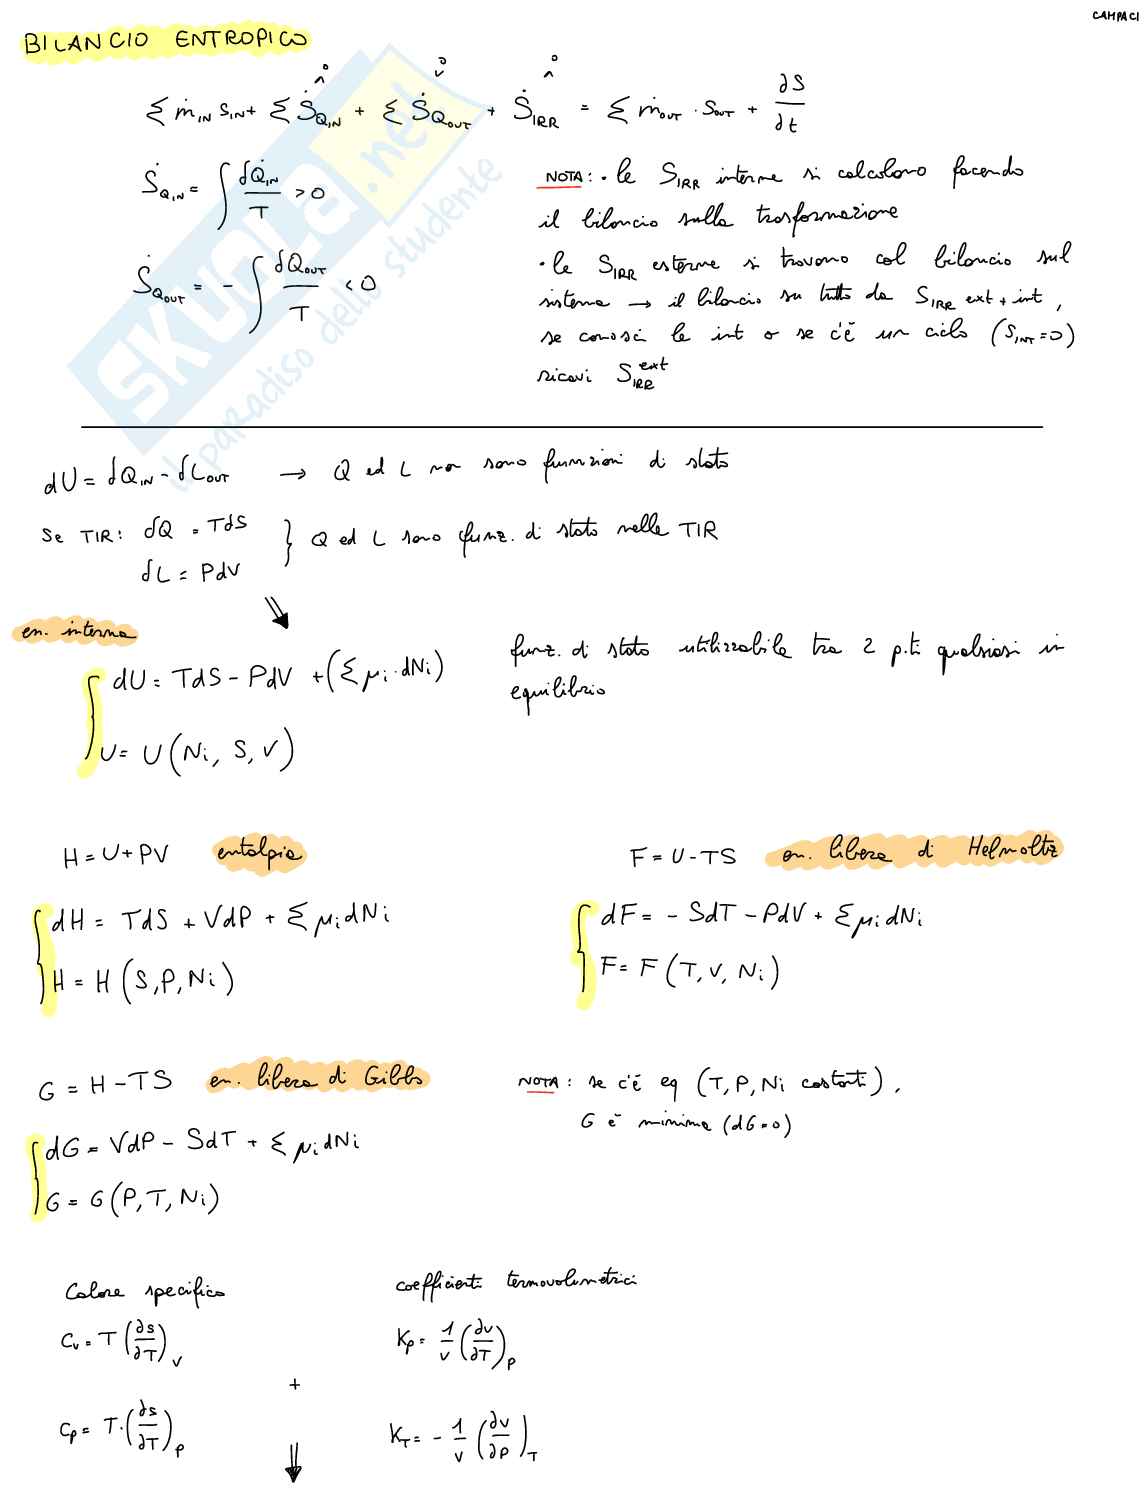 CAMPACI
BILANCIO ENTROPICO
Σ ṁ_IN s_IN + Σ Ṡ_Q_IN + Σ Ṡ_Q_OUT + Ṡ_IRR = Σ ṁ_OUT · s_OUT + ∂S/∂t
Ṡ_Q_IN = ∫ δQ̇_IN/T > 0
Ṡ_Q_OUT = - ∫ δQ_OUT/T < 0
NOTA: · le S_IRR interne si calcolano facendo
il bilancio sulla trasformazione
· le S_IRR esterne si trovano col bilancio sul
sistema → il bilancio su tutto da S_IRR ext + int,
se conosci le int o se c'è un ciclo (S_INT = 0)
ricavi S_IRR^ext
SKUOLA.net
il paradiso dello studente
dU = δQ_IN - δL_OUT → Q ed L non sono funzioni di stato
Se TIR: δQ = TdS
δL = PdV
} Q ed L sono funz. di stato nelle TIR
⇓
en. interna
dU = TdS - PdV + (Σ μi · dNi)
U = U(Ni, S, V)
funz. di stato utilizzabile tra 2 p.ti qualsiasi in
equilibrio
H = U + PV entalpia
dH = TdS + VdP + Σ μi dNi
H = H(S, P, Ni)
F = U - TS en. libera di Helmoltz
dF = - SdT - PdV + Σ μi dNi
F = F(T, V, Ni)
G = H - TS en. libera di Gibbs
dG = VdP - SdT + Σ μi dNi
G = G(P, T, Ni)
NOTA: se c'è eq (T, P, Ni costanti),
G è minima (dG = 0)
Calore specifico
Cv = T (∂s/∂T)_v
Cp = T · (∂s/∂T)_P
+
⇓
coefficienti termovolumetrici
Kp = 1/v (∂v/∂T)_P
K_T = - 1/v (∂v/∂P)_T